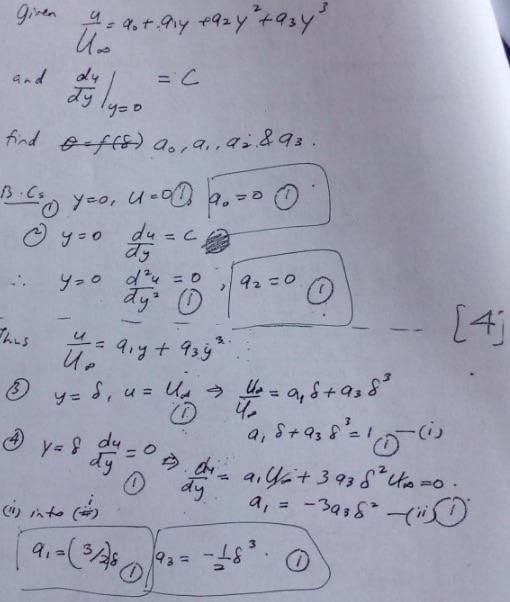 Given u/U∞ = a₀ + a₁y + a₂y² + a₃y³
and du/dy|y=0 = C
find a₀, a₁, a₂ & a₃.
B.Cs ① y=0, u=0 ①, a₀=0 ①
② y=0 du/dy = C
∴ y=0 d²u/dy² = 0 ①, a₂=0 ①
[4]
Thus u/U∞ = a₁y + a₃y³
③ y=δ, u=U∞ ① ⇒ U∞/U∞ = a₁δ + a₃δ³
a₁δ + a₃δ³ = 1 ① —(i)
④ y=δ du/dy = 0 ① ⇒ du/dy = a₁U∞ + 3a₃δ²U∞ = 0.
a₁ = -3a₃δ² —(ii) ①
(ii) into (i)
a₁ = (3/2)δ ① a₃ = -1/2 δ³. ①